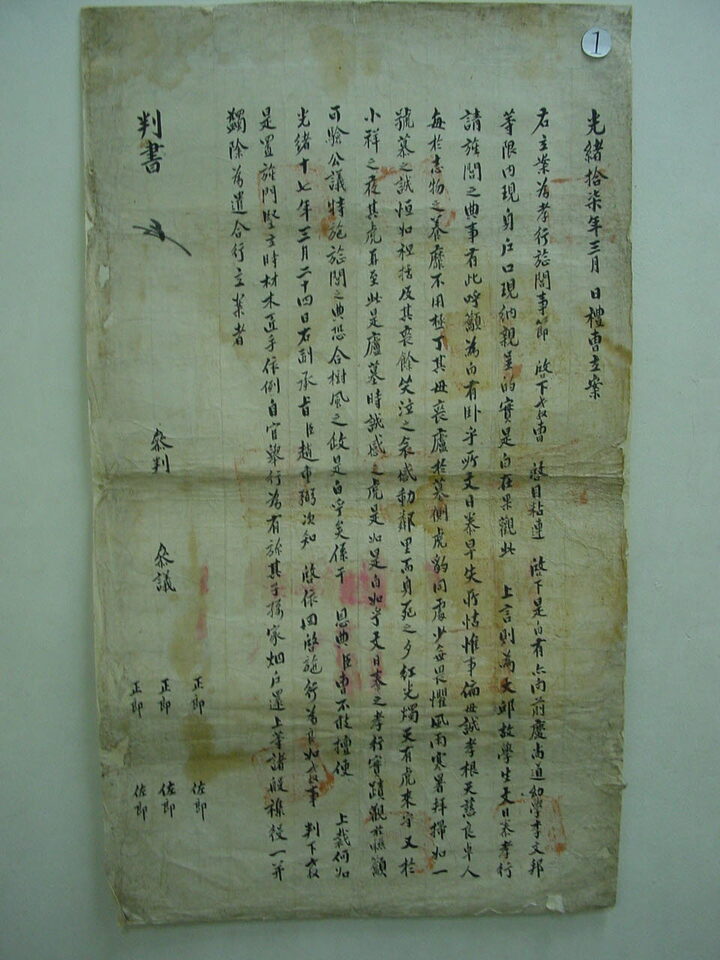 1
光緒拾柒年三月 日禮曹立案
右立案為孝行㫌閭事節 啓下敎曹 啓目粘連 啓下是白有亦向前慶尙道幼學李文邦
等限內現身戶口現納親呈的實是白在果觀此 上言則為大邱故學生文日泰孝行
請㫌閭之典事有此呼籲為白有卧乎所文日泰早失所怙惟事偏母誠孝根天慈良卓人
每於志物之養靡不用極丁其母喪廬於墓側虎豹同處少無畏懼風雨寒暑拜掃如一
號慕之誠恒如袒括及其喪餘哭泣之哀感動鄰里而身死之夕紅光燭天有虎來守又於
小祥之夜其虎再至此是廬墓時誠感之虎是如是白如乎文日泰之孝行實蹟觀於㸃籲
可驗公議特施㫌閭之典恐合樹風之政是白乎矣係干 恩典臣曹不敢擅便 上裁何如
光緖十七年三月二十四日右副承旨臣趙重弼次知 啓依回啓施行為良如敎事 判下敎
是置㫌門竪立時材木匠手依例自官擧行為有旀其子孫家烟戶還上等諸般襍役一并
蠲除為遣合行立案者
判書
叅判
叅議
正郎
正郎
正郎
佐郎
佐郎
佐郎